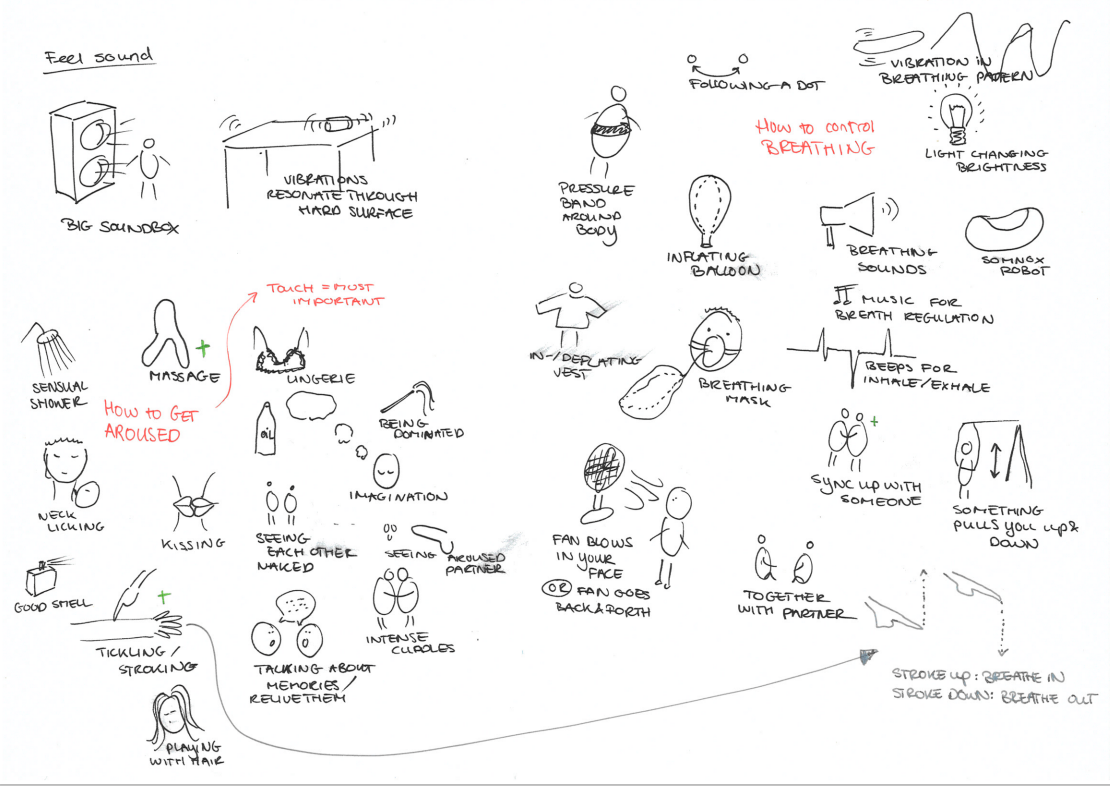 Feel sound
BIG SOUNDBOX
VIBRATIONS
RESONATE THROUGH
HARD SURFACE
FOLLOWING A DOT
VIBRATION IN
BREATHING PATTERN
HOW TO CONTROL
BREATHING
LIGHT CHANGING
BRIGHTNESS
PRESSURE
BAND
AROUND
BODY
INFLATING
BALLOON
BREATHING
SOUNDS
SOMNOX
ROBOT
MUSIC FOR
BREATH REGULATION
IN-/DEFLATING
VEST
BREATHING
MASK
BEEPS FOR
INHALE/EXHALE
SYNC UP WITH
SOMEONE
SOMETHING
PULLS YOU UP &
DOWN
FAN BLOWS
IN YOUR
FACE
OR FAN GOES
BACK & FORTH
TOGETHER
WITH PARTNER
STROKE UP: BREATHE IN
STROKE DOWN: BREATHE OUT
TOUCH = MOST
IMPORTANT
SENSUAL
SHOWER
MASSAGE
LINGERIE
HOW TO GET
AROUSED
OIL
BEING
DOMINATED
IMAGINATION
NECK
LICKING
KISSING
SEEING
EACH OTHER
NAKED
SEEING AROUSED
PARTNER
GOOD SMELL
TICKLING /
STROKING
TALKING ABOUT
MEMORIES/
RELIVE THEM
INTENSE
CUDDLES
PLAYING
WITH HAIR